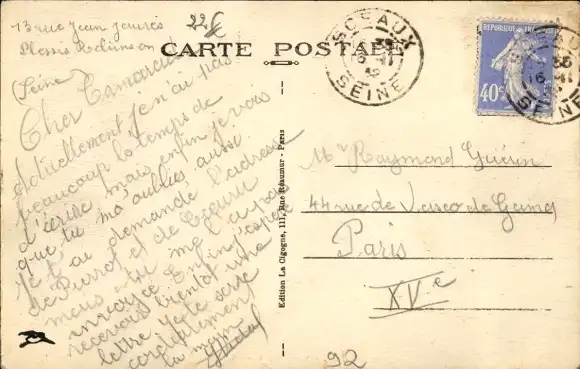 13 rue Jean Jaurès
Plessis Robinson
(Seine)
22 f
CARTE POSTALE
SCEAUX
SEINE
REPUBLIQUE FRANÇAISE
40c
Cher Camarade
Actuellement je n'ai pas
beaucoup le temps de
d'écrire mais enfin je vois
que tu m'oublies aussi
Je t'ai demandé l'adresse
de Pierrot et de
mais tu me l'a pas
envoyée Enfin j'espère
recevoir bientôt une
lettre Je te serre
cordialement
la main
Edition La Cigogne, 111, Rue Réaumur - Paris
Mr Raymond Guérin
44 rue de Vasco de Gama
Paris
XVe
92